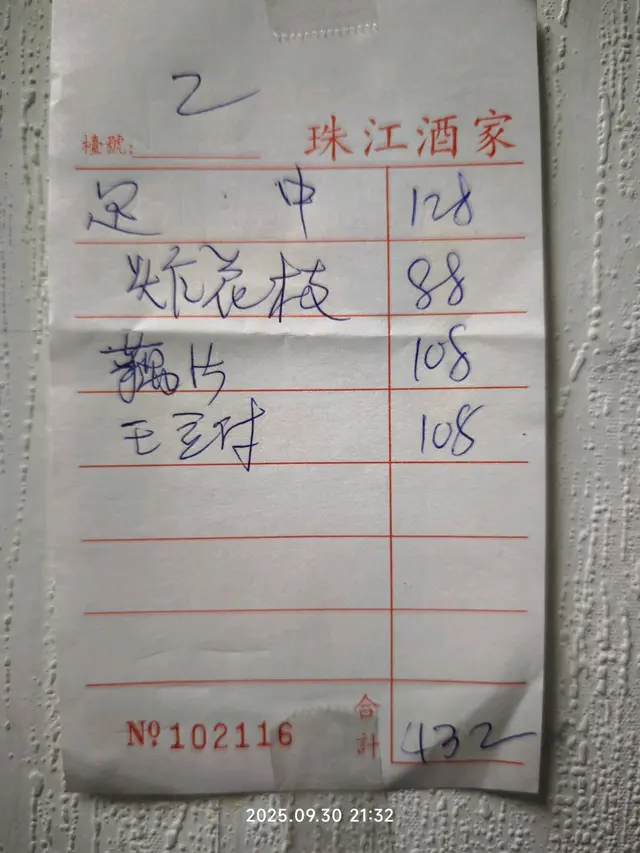 2
檯號:
珠江酒家
足 中 128
炸花枝 88
藕片 108
108
No 102116
合計 432
2025.09.30 21:32